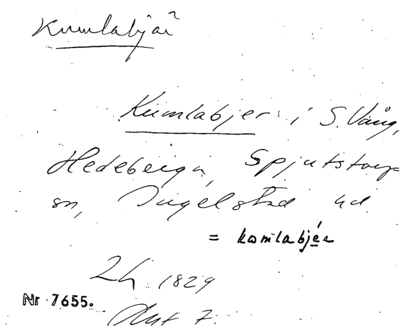 Kumlabjär
Kumlabjer i S. Vång,
Hedeberga, Spjutstorps
sn, Ingelstad hd
= komlabjér
Lh 1829
Nr 7655.
Akt 7.